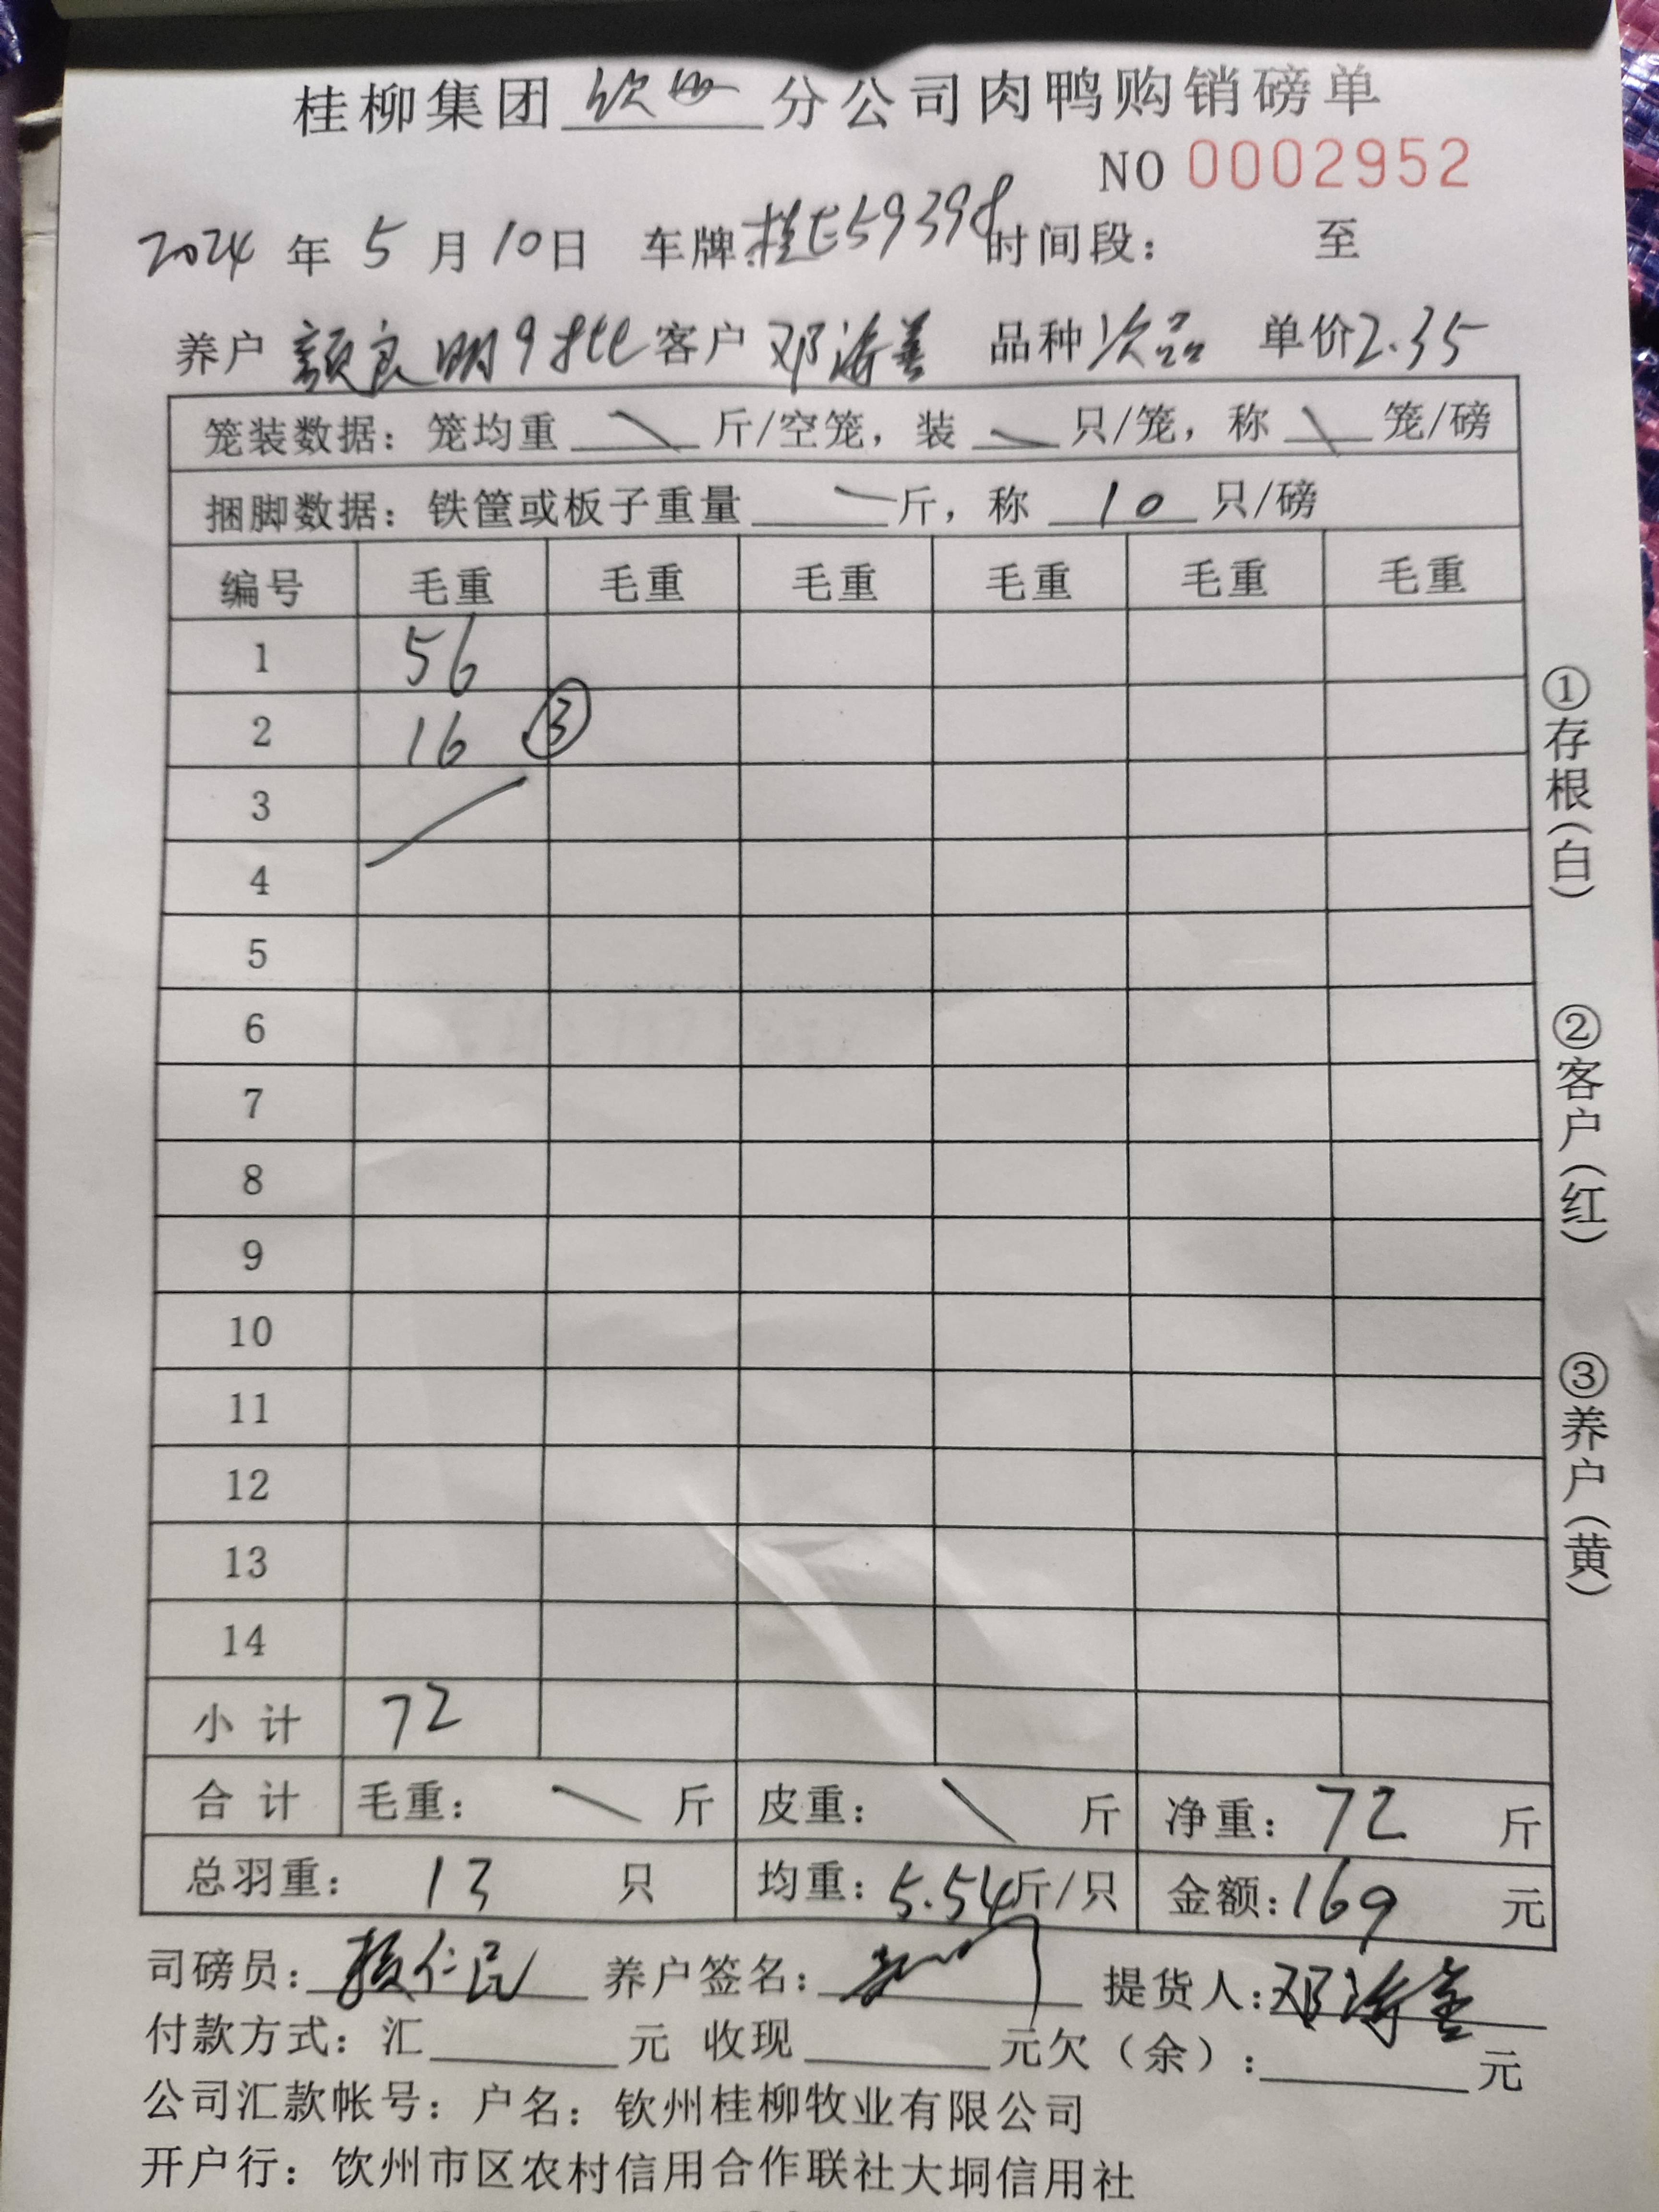 桂柳集团 钦州 分公司肉鸭购销磅单
NO 0002952
2024 年 5 月 10 日 车牌: 桂E59398 时间段: 至
养户 颜良明9批 客户 邓海善 品种 次品 单价 2.35
笼装数据: 笼均重 \ 斤/空笼, 装 \ 只/笼, 称 \ 笼/磅
捆脚数据: 铁筐或板子重量 \ 斤, 称 10 只/磅
编号 毛重 毛重 毛重 毛重 毛重 毛重
1 56
2 16 ③
3
4
5
6
7
8
9
10
11
12
13
14
小计 72
合计 毛重: \ 斤 皮重: \ 斤 净重: 72 斤
总羽重: 13 只 均重: 5.54 斤/只 金额: 169 元
①存根(白)
②客户(红)
③养户(黄)
司磅员: 仁民 养户签名: 提货人: 邓海善
付款方式: 汇 元 收现 元 欠(余): 元
公司汇款帐号: 户名: 钦州桂柳牧业有限公司
开户行: 钦州市区农村信用合作联社大垌信用社